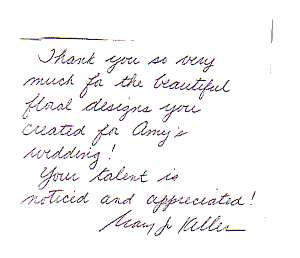 Thank you so very
much for the beautiful
floral designs you
created for Amy's
wedding!
Your talent is
noticid and appreciated!
Mary Jo Keller